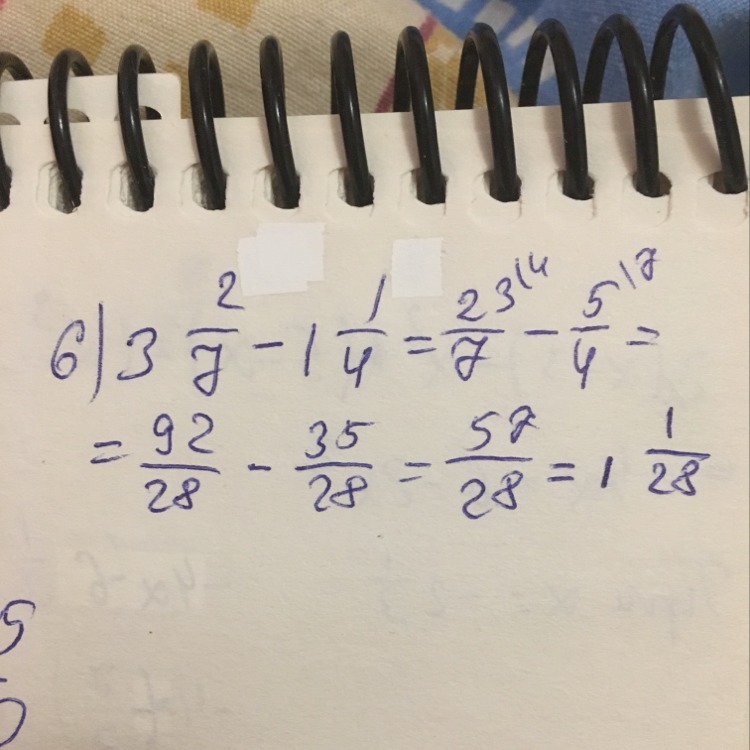 6) 3 2/7 - 1 1/4 = 23\4/7 - 5\7/4 =
= 92/28 - 35/28 = 57/28 = 1 1/28